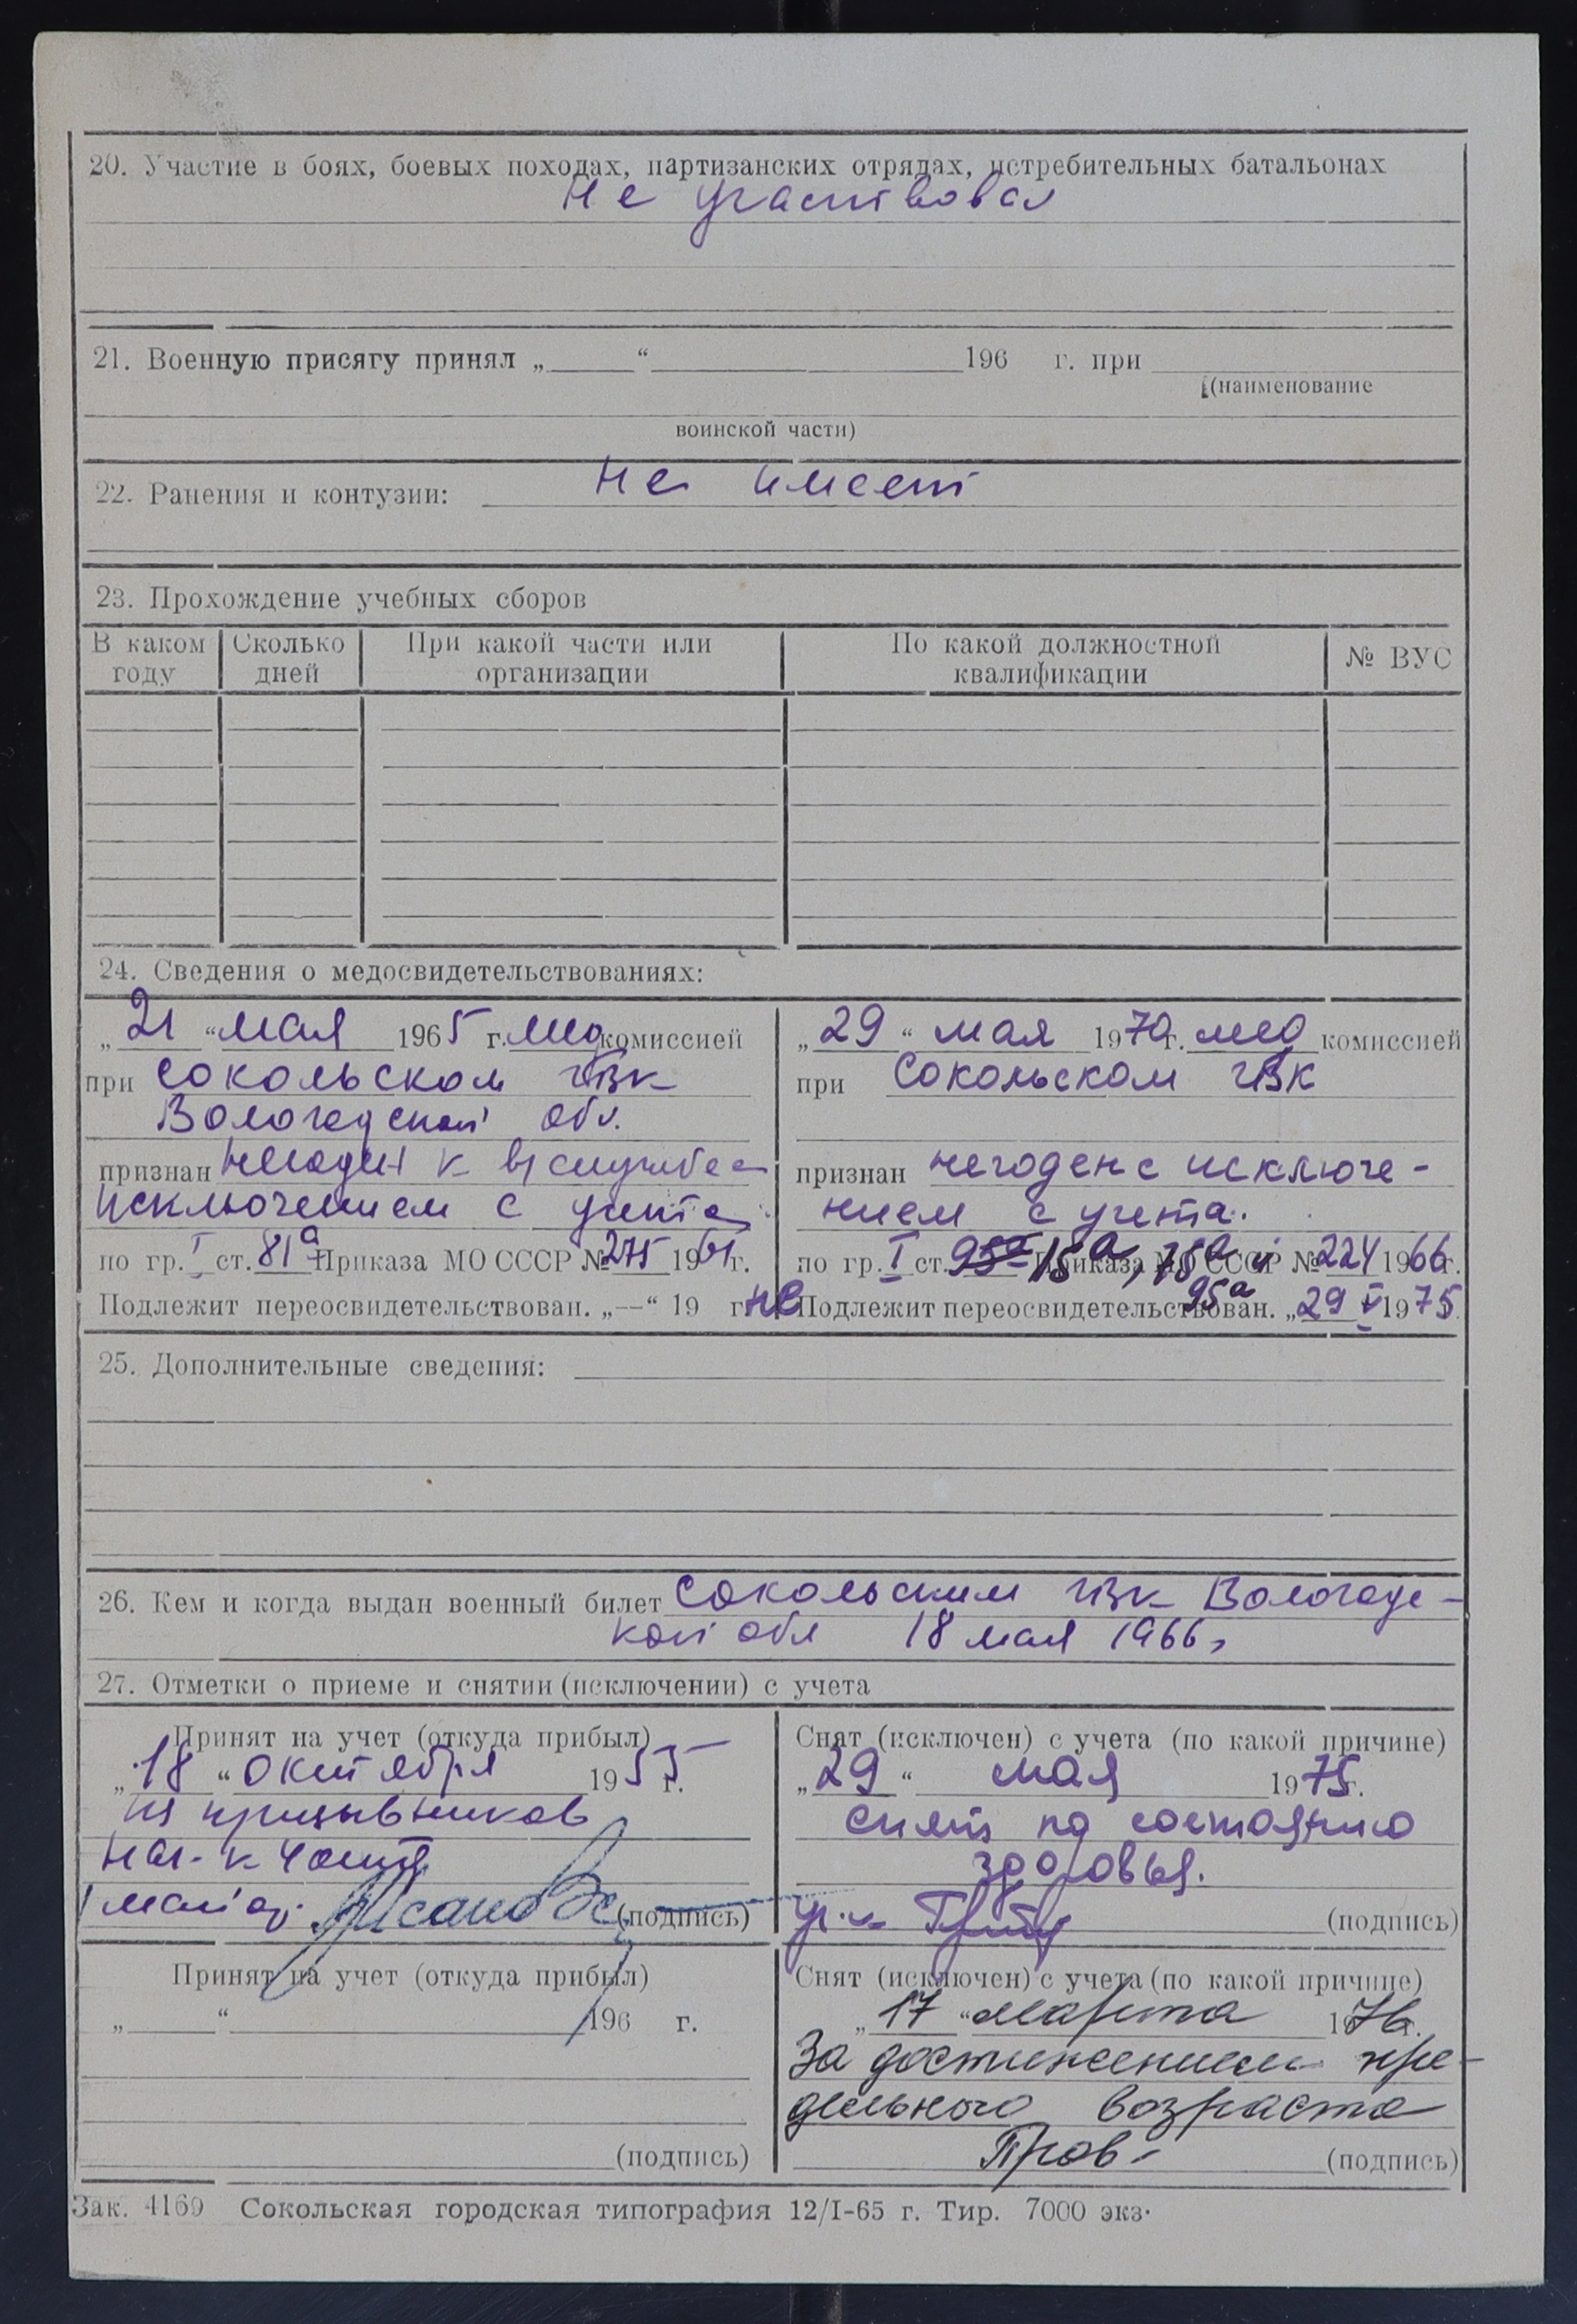 20. Участие в боях, боевых походах, партизанских отрядах, истребительных батальонах
не участвовал
21. Военную присягу принял „ “ 196 г. при
(наименование
воинской части)
22. Ранения и контузии: не имеет
23. Прохождение учебных сборов
В каком году Сколько дней При какой части или организации По какой должностной квалификации № ВУС
24. Сведения о медосвидетельствованиях:
„21“ мая 1965 г. мед комиссией
при Сокольском ГВК
Вологодской обл.
признан негоден к в/службе с
исключением с учета
по гр. I ст. 81а Приказа МО СССР № 275 1961 г.
Подлежит переосвидетельствован. „—“ 19 г.
„29“ мая 1970 г. мед комиссией
при Сокольском ГВК
признан негоден с исключе-
нием с учета.
по гр. I ст. 95а 15а, 75а и 95а Приказа МО СССР № 224 1966 г.
не Подлежит переосвидетельствован. „29 V 1975
25. Дополнительные сведения:
26. Кем и когда выдан военный билет Сокольским ГВК Вологодс-
кой обл 18 мая 1966г
27. Отметки о приеме и снятии (исключении) с учета
Принят на учет (откуда прибыл)
„18“ октября 1955 г.
из призывников
нач. к части
майор (подпись)
Снят (исключен) с учета (по какой причине)
„29“ мая 1975 г.
снят по состоянию
здоровья.
(подпись)
Принят на учет (откуда прибыл)
„ “ 196 г.
(подпись)
Снят (исключен) с учета (по какой причине)
„17“ марта 1976 г.
За достижением пре-
дельного возраста
(подпись)
Зак. 4169 Сокольская городская типография 12/I-65 г. Тир. 7000 экз.